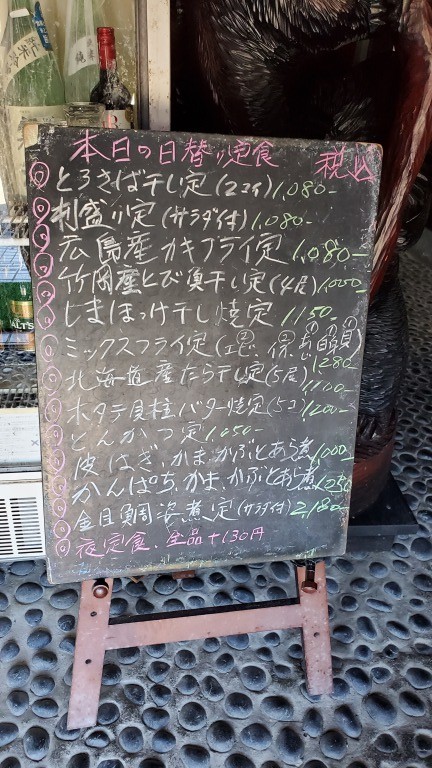 本日の日替り定食 税込
とろさば干し定(2コイ)1,080-
刺盛り定(サラダ付)1,080-
広島産カキフライ定 1,080-
竹岡産とび魚干し定(4尾)1000-
しまほっけ干し焼定 1150-
ミックスフライ定( 1280-
北海道産たら干し定(5尾)1100-
ホタテ貝柱バター焼定(5コ)1200-
とんかつ定 1,050-
皮はぎ、かま、かぶとあら煮 1000-
かんぱち、かま、かぶとあら煮 1250
金目鯛姿煮定(サラダ付)2,180-
夜定食、全品+130円